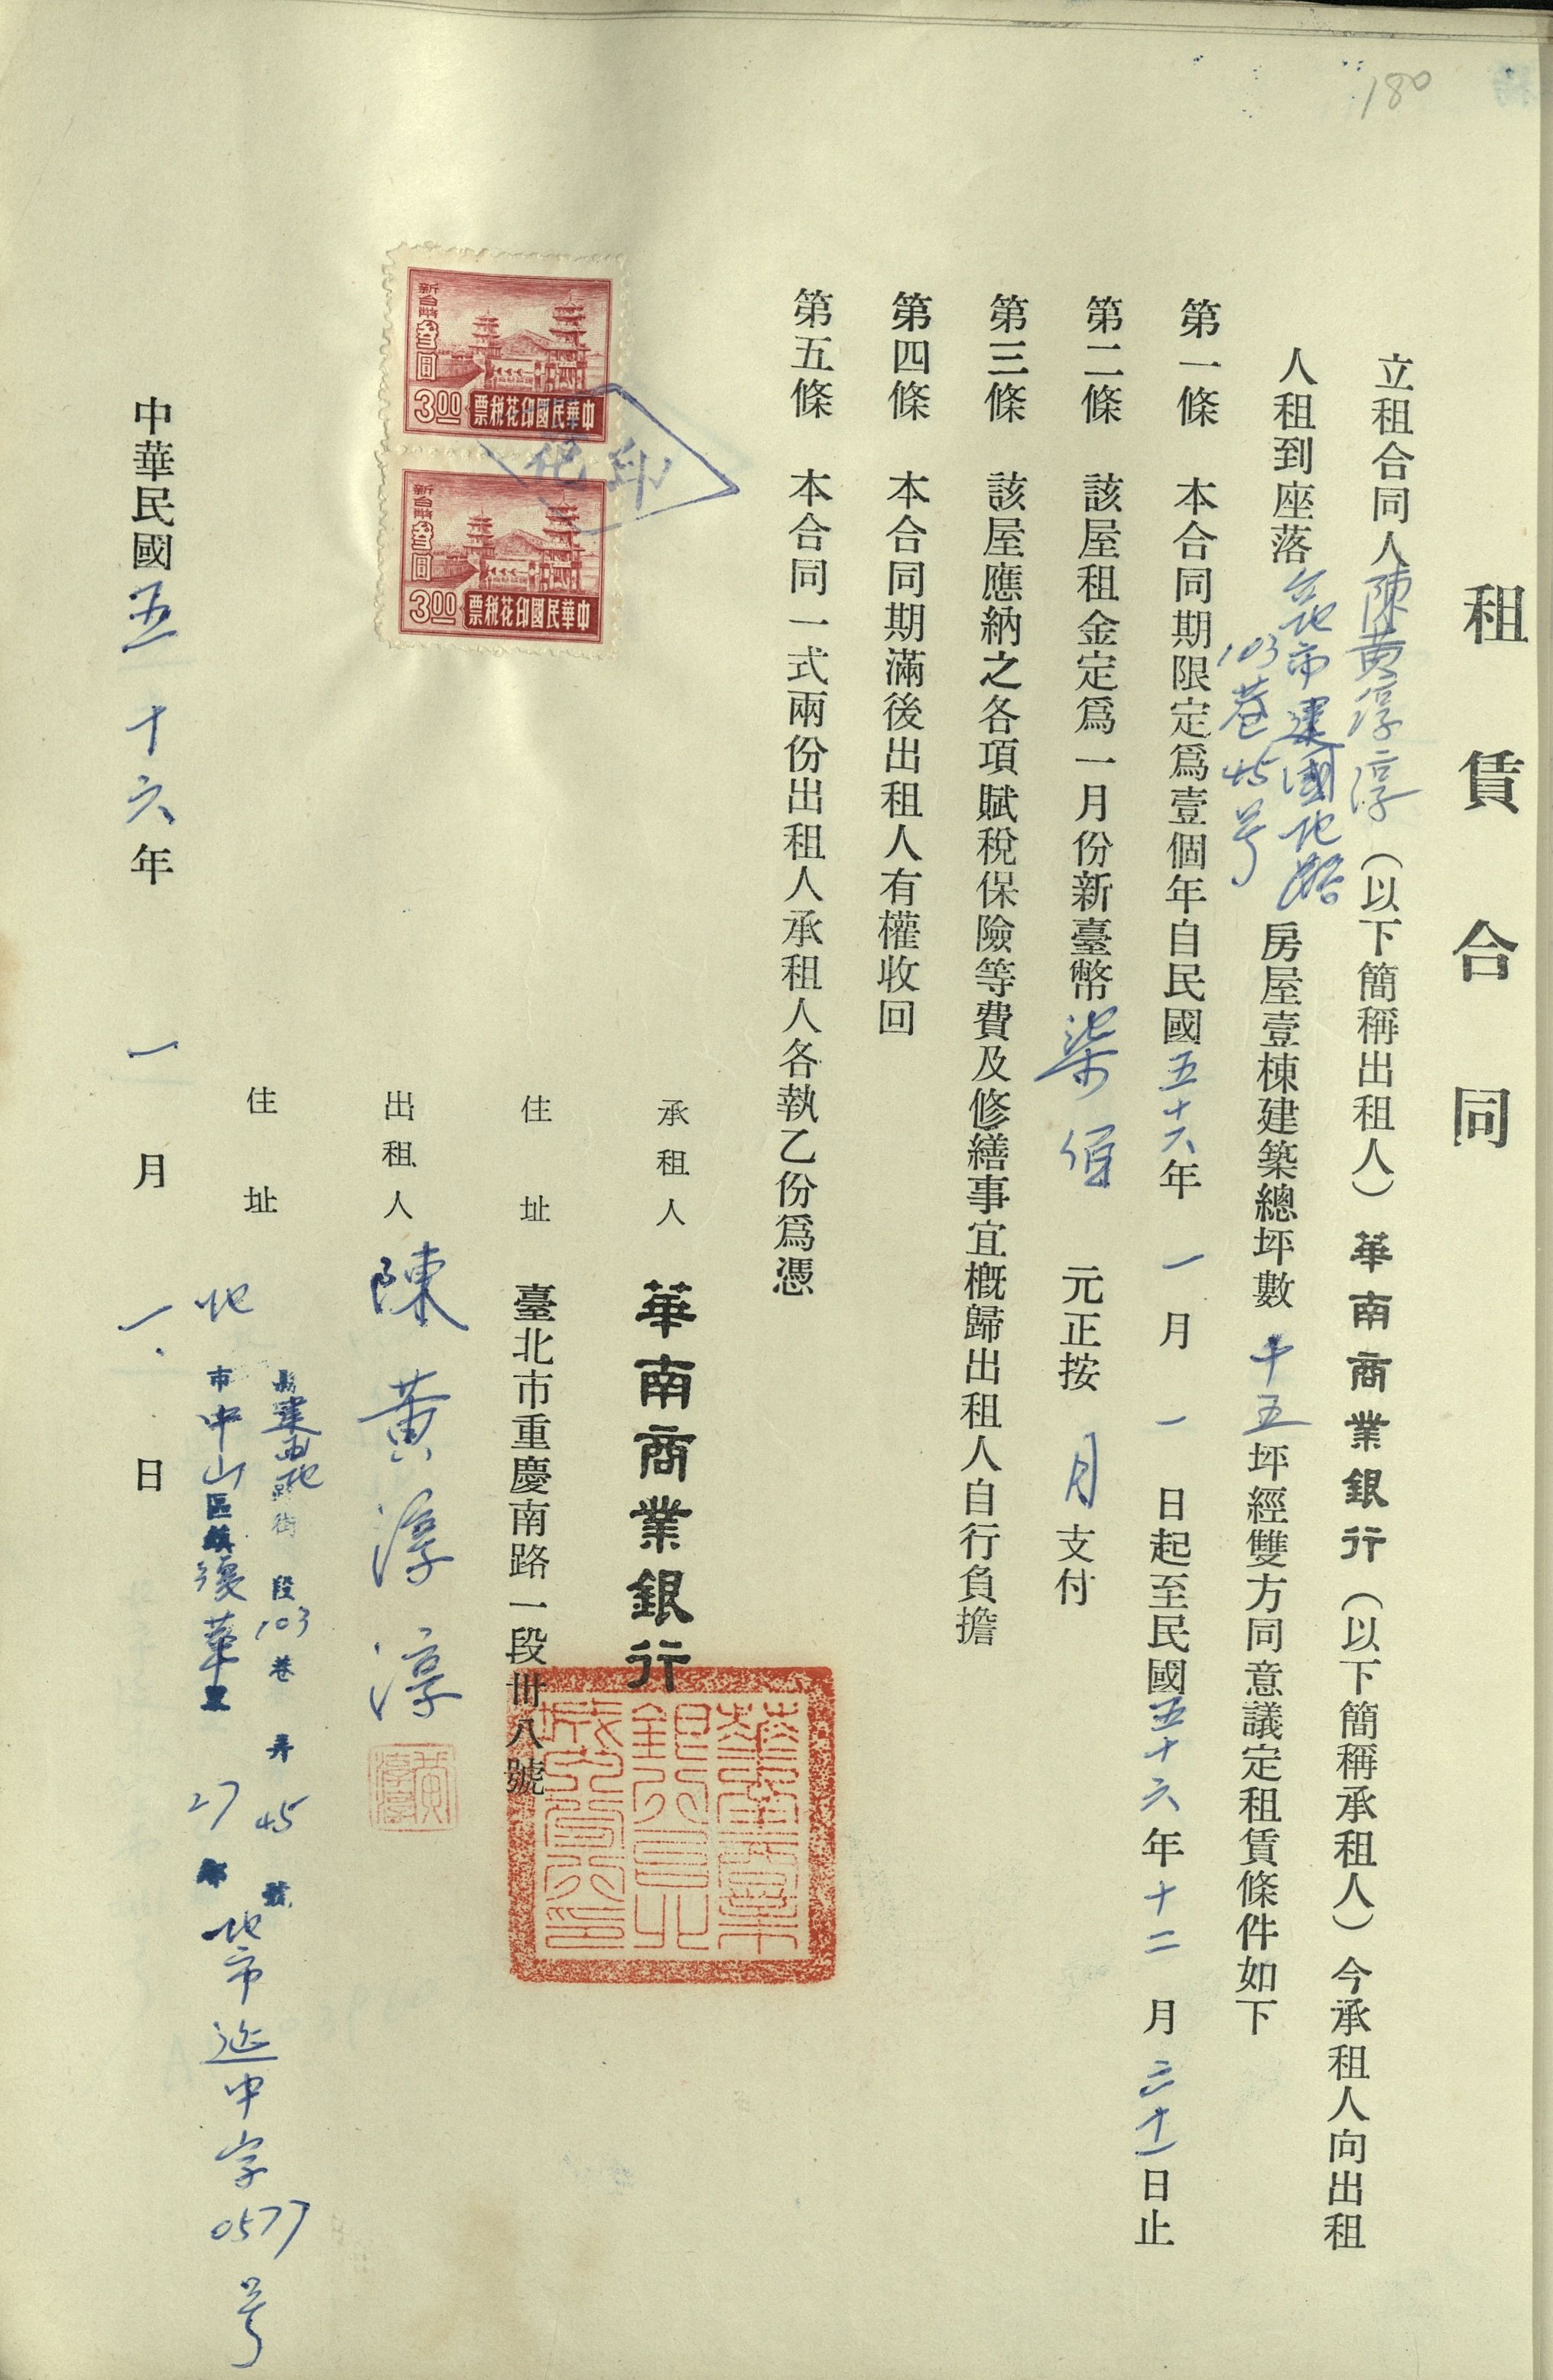 180
租賃合同
立租合同人陳黃淳淳（以下簡稱出租人）華南商業銀行（以下簡稱承租人）今承租人向出租
人租到座落台北市建國北路103巷45号房屋壹棟建築總坪數十五坪經雙方同意議定租賃條件如下
第一條　本合同期限定爲壹個年自民國五十六年一月一日起至民國五十六年十二月三十一日止
第二條　該屋租金定爲一月份新臺幣柒佰元正按月支付
第三條　該屋應納之各項賦稅保險等費及修繕事宜概歸出租人自行負擔
第四條　本合同期滿後出租人有權收回
第五條　本合同一式兩份出租人承租人各執乙份爲憑
新台幣叁圓
3.00
中華民國印花稅票
新台幣叁圓
3.00
中華民國印花稅票
印花
承租人　華南商業銀行
住址　臺北市重慶南路一段卅八號
出租人　陳黃淳淳
住址
縣建國北路街段103巷弄45號
北市中山區鎮復華里27鄰北市延中字0577号
中華民國五十六年一月一日